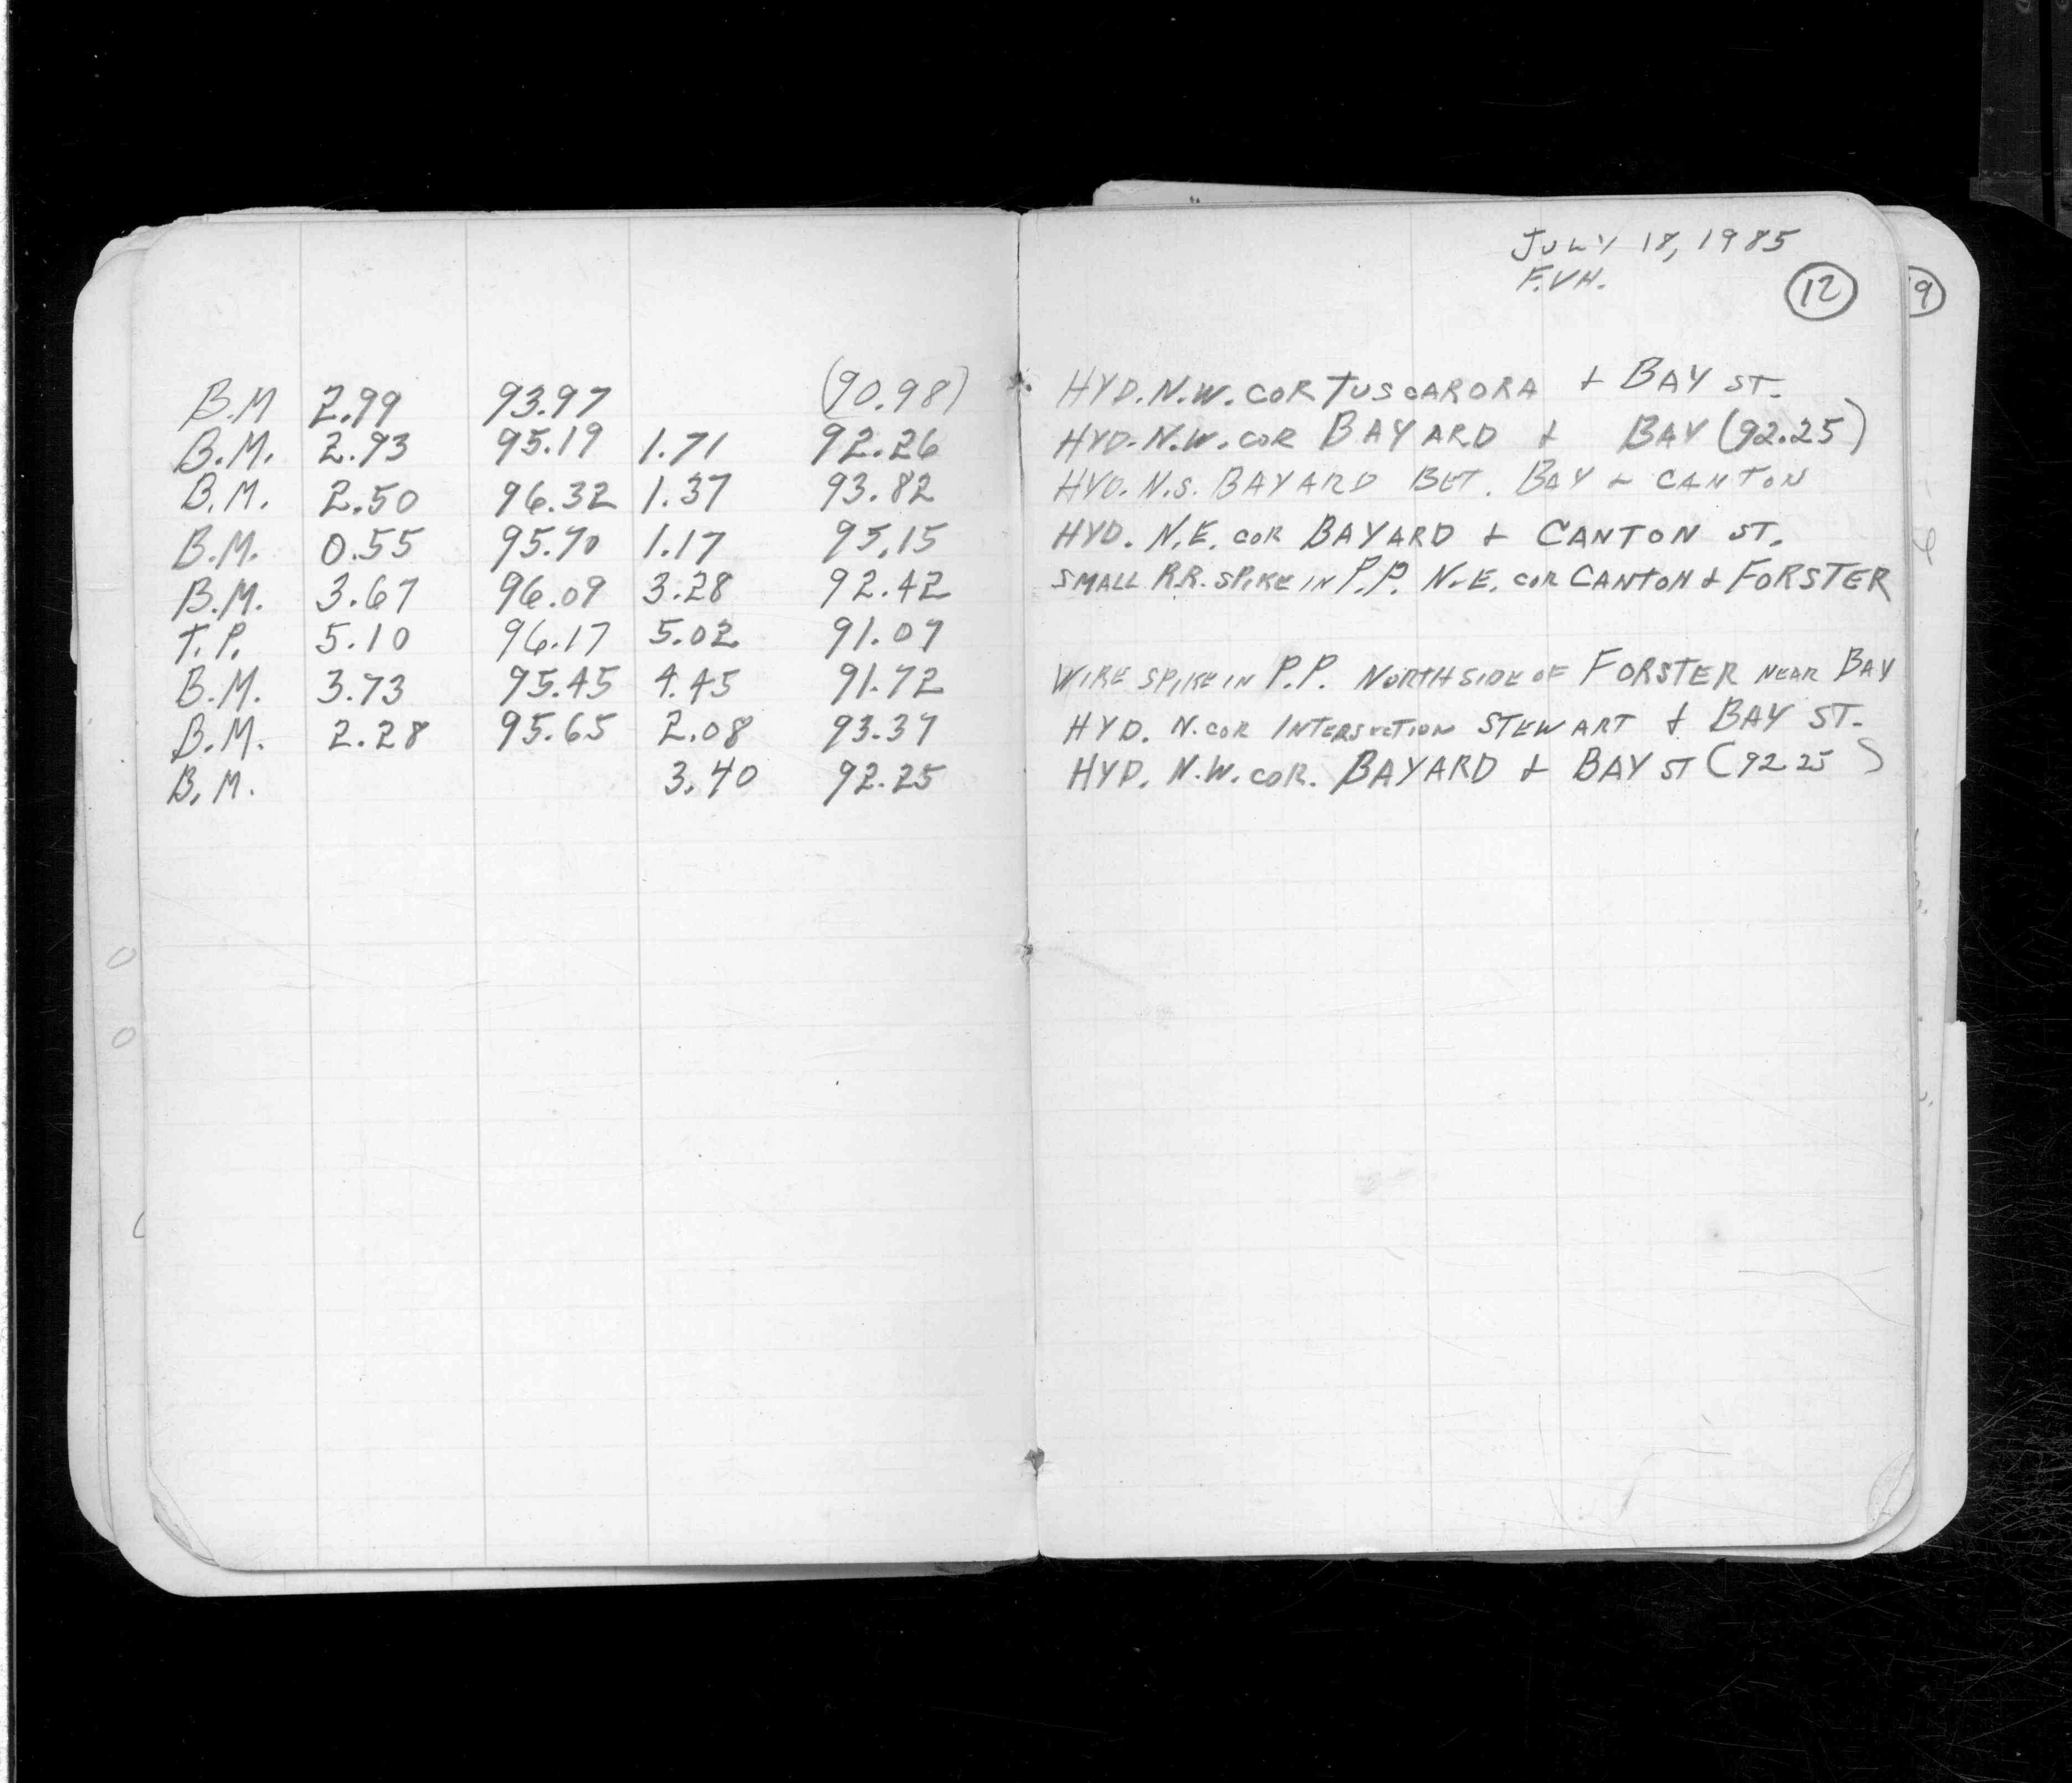 JULY 18, 1985
F.VH.
12
9
B.M 2.99 93.97 (90.98) HYD. N.W. COR TUSCARORA + BAY ST.
B.M. 2.93 95.19 1.71 92.26 HYD. N.W. COR BAYARD + BAY (92.25)
B.M. 2.50 96.32 1.37 93.82 HYD. N.S. BAYARD BET. BAY + CANTON
B.M. 0.55 95.70 1.17 95.15 HYD. N.E. COR BAYARD + CANTON ST.
B.M. 3.67 96.09 3.28 92.42 SMALL R.R. SPIKE IN P.P. N.E. COR CANTON + FORSTER
T.P. 5.10 96.17 5.02 91.07
B.M. 3.73 95.45 4.45 91.72 WIRE SPIKE IN P.P. NORTH SIDE OF FORSTER NEAR BAY
B.M. 2.28 95.65 2.08 93.37 HYD. N. COR INTERSECTION STEWART + BAY ST.
B.M. 3.40 92.25 HYD. N.W. COR. BAYARD + BAY ST (92 25)